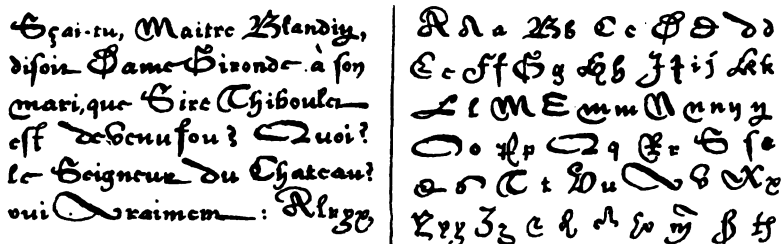 Sçai-tu, Maitre Blandin,
disoit Dame Gironde à son
mari, que Sire Thiboulet
est devenu fou? Quoi?
le Seigneur du Chateau?
oui Vraiment :
A A a B b C c D D d d
E e F f G g H h J j i j K k
L l M E m m N n n y y
O o P p Q q R r S s e
T t V u V v X x
Y y y Z z